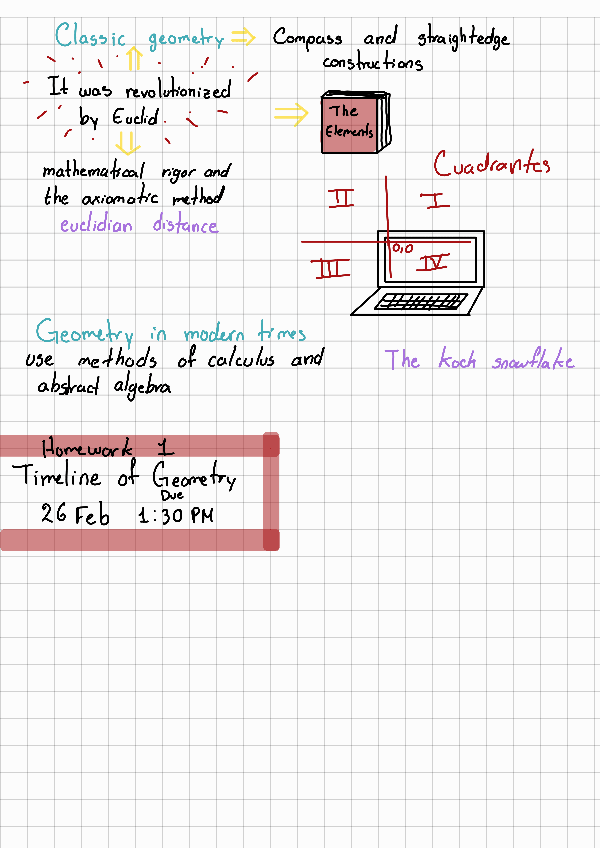 Classic geometry ⇒ Compass and straightedge
constructions
It was revolutionized
by Euclid.
The
Elements
mathematical rigor and
the axiomatic method
euclidian distance
Cuadrantes
II I
0,0
III IV
Geometry in modern times
use methods of calculus and
abstract algebra
The Koch snowflake
Homework 1
Timeline of Geometry
Due
26 Feb 1:30 PM